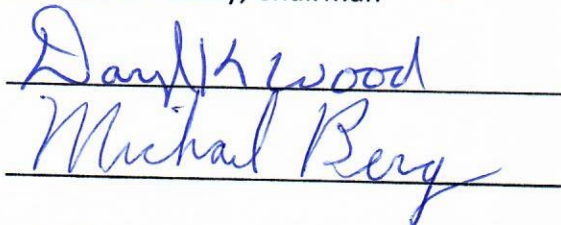 , Chairman
Daryl K Wood
Michael Berg